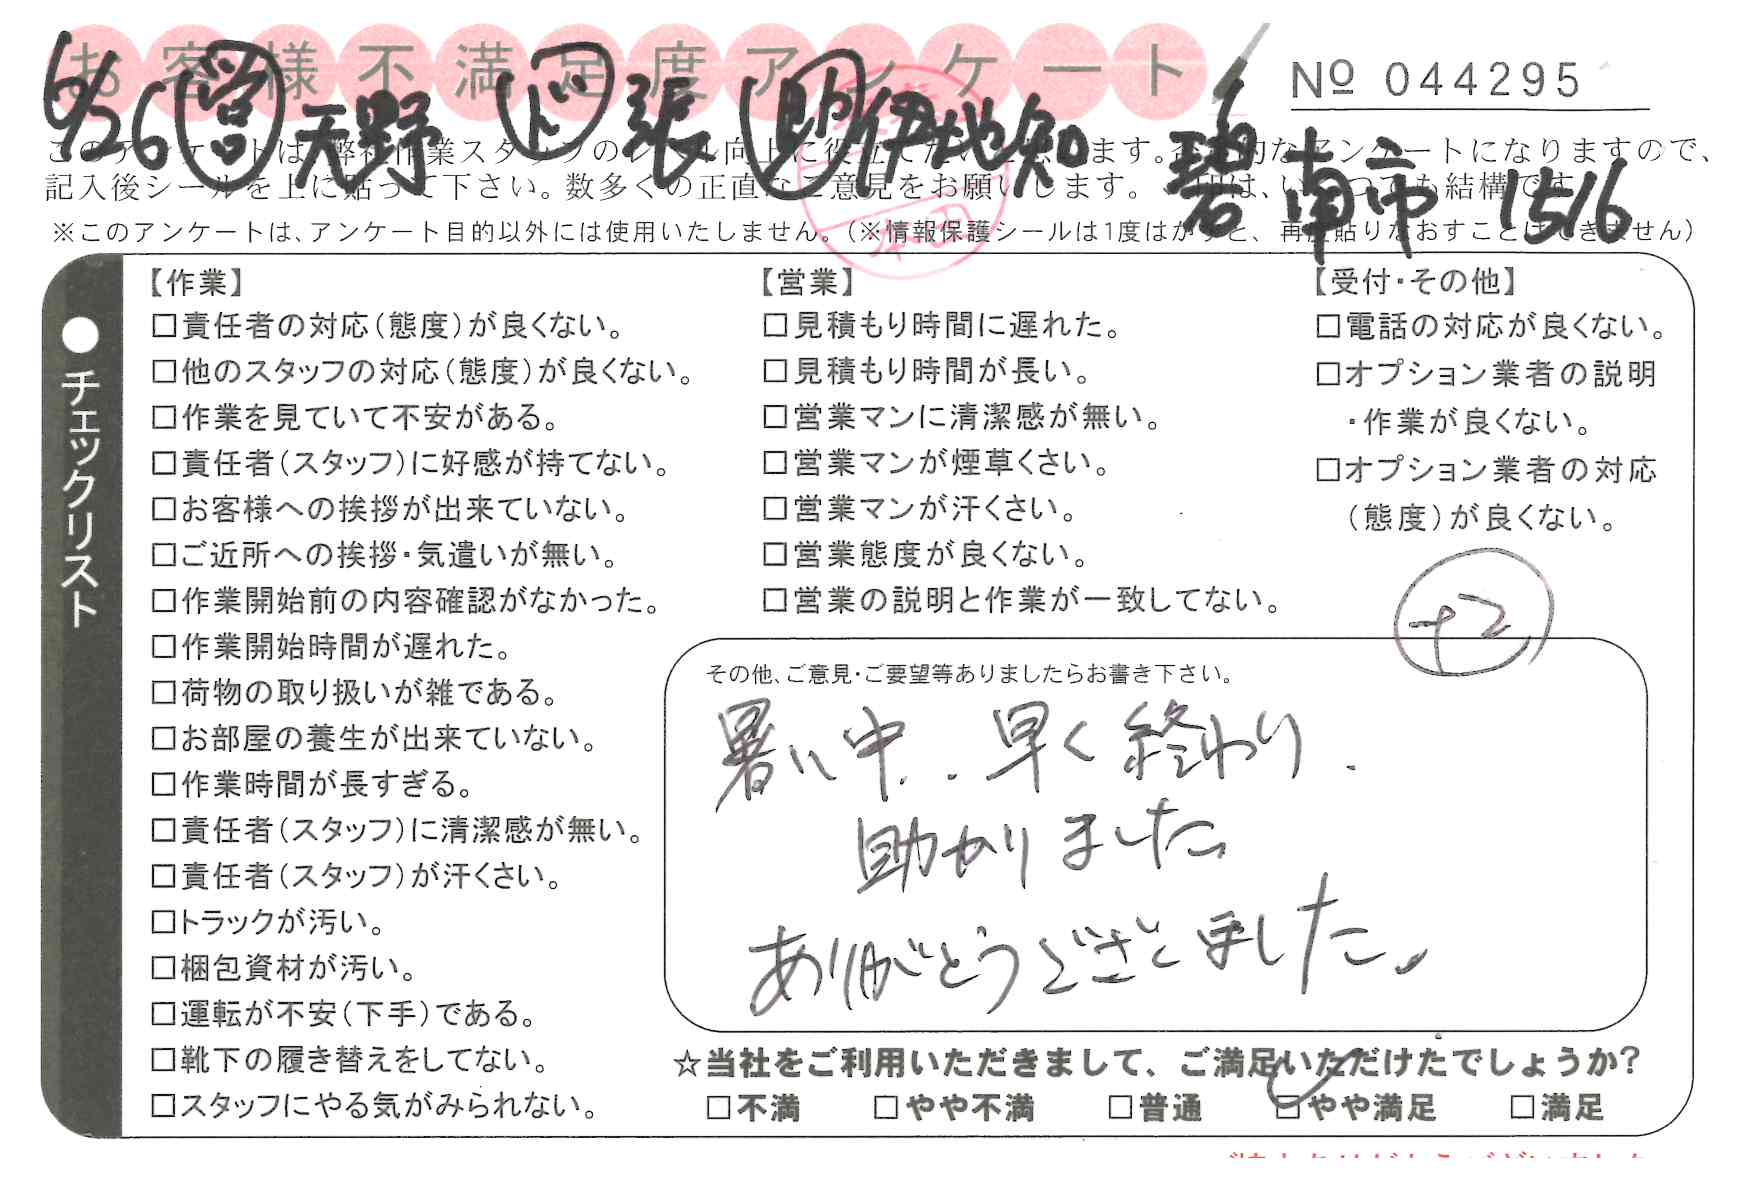 お客様不満足度アンケート
№ 044295
6/26 営 天野 ド 張 助 伊地知 碧南市 1516
このアンケートは、弊社作業スタッフのレベル向上に役立てたいと思います。否定的なアンケートになりますので、
記入後シールを上に貼って下さい。数多くの正直なご意見をお願いします。 は、いつでも結構です
※このアンケートは、アンケート目的以外には使用いたしません。(※情報保護シールは1度はがすと、再度貼りなおすことはできません)
●チェックリスト
【作業】
□責任者の対応(態度)が良くない。
□他のスタッフの対応(態度)が良くない。
□作業を見ていて不安がある。
□責任者(スタッフ)に好感が持てない。
□お客様への挨拶が出来ていない。
□ご近所への挨拶・気遣いが無い。
□作業開始前の内容確認がなかった。
□作業開始時間が遅れた。
□荷物の取り扱いが雑である。
□お部屋の養生が出来ていない。
□作業時間が長すぎる。
□責任者(スタッフ)に清潔感が無い。
□責任者(スタッフ)が汗くさい。
□トラックが汚い。
□梱包資材が汚い。
□運転が不安(下手)である。
□靴下の履き替えをしてない。
□スタッフにやる気がみられない。
【営業】
□見積もり時間に遅れた。
□見積もり時間が長い。
□営業マンに清潔感が無い。
□営業マンが煙草くさい。
□営業マンが汗くさい。
□営業態度が良くない。
□営業の説明と作業が一致してない。
【受付・その他】
□電話の対応が良くない。
□オプション業者の説明
・作業が良くない。
□オプション業者の対応
(態度)が良くない。
+2
その他、ご意見・ご要望等ありましたらお書き下さい。
暑い中、早く終わり
助かりました
ありがとうございました。
☆当社をご利用いただきまして、ご満足いただけたでしょうか?
□不満 □やや不満 □普通 ☑やや満足 □満足